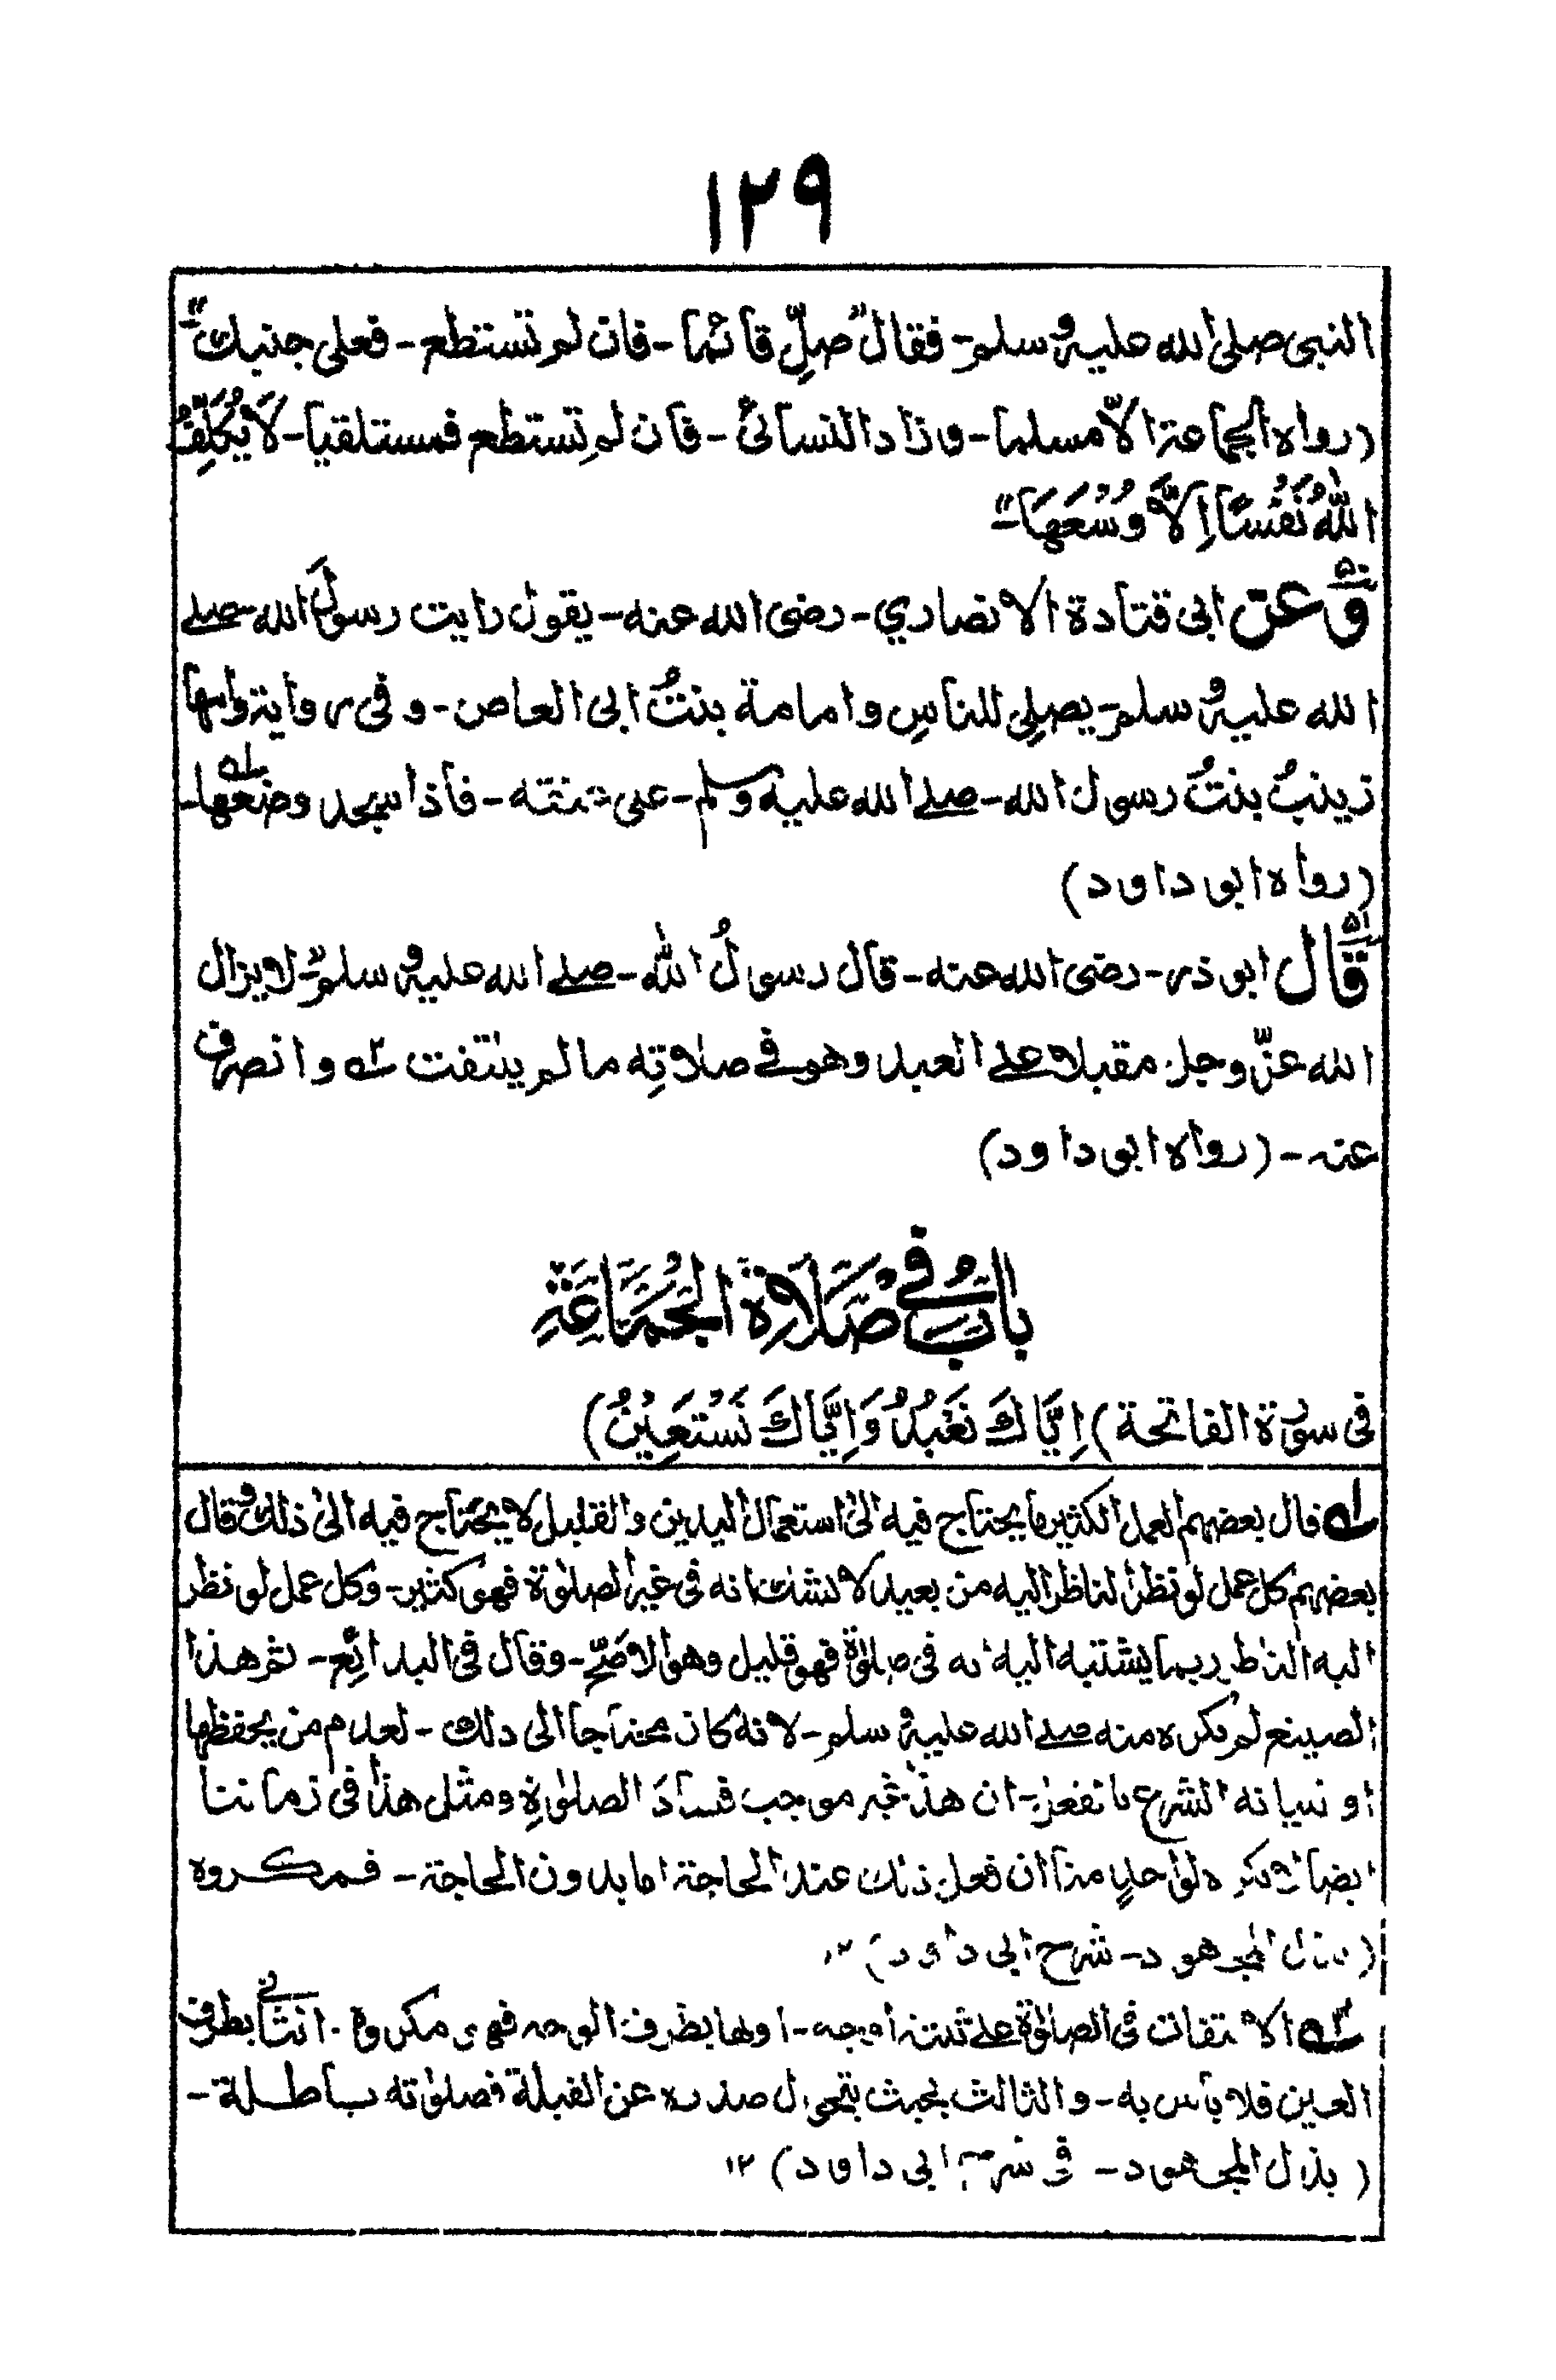 ١٢٩
النبی صلی الله علیه وسلم- فقال "صلِّ قائما- فان لم تستطع- فعلی جنبك"-
(رواه الجماعة الاّ مسلما- وزاد النسائیُّ- فان لم تستطع فمستلقیا- لَا یُكَلِّفُ
اللّٰهُ نَفْسًا اِلَّا وُسْعَهَا"-
وعن ابی قتادة الانصاري- رضی الله عنه- یقول رایت رسولَ الله- صلے
الله علیه وسلم- یصلِی للناسِ وامامة بنتُ ابی العاص- وفی روایة وامها
زینبُ بنتُ رسول الله- صلے الله علیه وسلم- علی عنقه- فاذا سجد وضعها- له
(رواه ابوداود)
قَال ابوذر- رضی الله عنه- قال رسولُ اللّٰه- صلے الله علیه وسلم"- لا یزال
الله عزّوجل مقبلا علے العبد وهو فے صلاتِه ما لم یلتفت ٢ه وانصرف
عنه- (رواه ابوداود)
بَابُ فِی صَلَاةِ الْجُمَّاعَةِ
فی سورة الفاتحة) اِیَّاكَ نَعْبُدُ وَاِیَّاكَ نَسْتَعِیْنُ)
له قال بعضهم العمل الكثیر ما یحتاج فیه الیٰ استعمال الیدین والقلیل لا یحتاج فیه الیٰ ذلك وقال
بعضهم كل عمل لو نظر الناظر الیه من بعید لا یشك انه فی غیر الصلوٰة فهو كثیر- وكل عمل لو نظر
الیه الناظر ربما یشتبه الیه انه فی صلوٰة فهو قلیل وهو الاصَحّ- وقال فی البدائِع- ثم هذا
الصنیع لم یكره منه صلے الله علیه وسلم- لانه كان محتاجا الی ذلك- لعدم من یحفظها
او بیانه الشرع بالفعل- ان هذا غیر موجب فسادَ الصلوٰةِ ومثل هذا فی زماننا
ایضا لا یكره لواحدٍ منا ان فعل ذلك عند الحاجة اما بدون الحاجة- فمكروه
(بذل المجهود- شرح ابی داود) ١٢
٢ه الالتفات فی الصلوٰة علے ثلثة اوجه- اولها بطرف الوجه فهی مكروه. الثانی بطرف
العین فلا باس به- والثالث بحیث یتحول صدره عن القبلة فصلوٰته باطلة-
(بذل المجهود- فی شرح ابی داود) ١٢